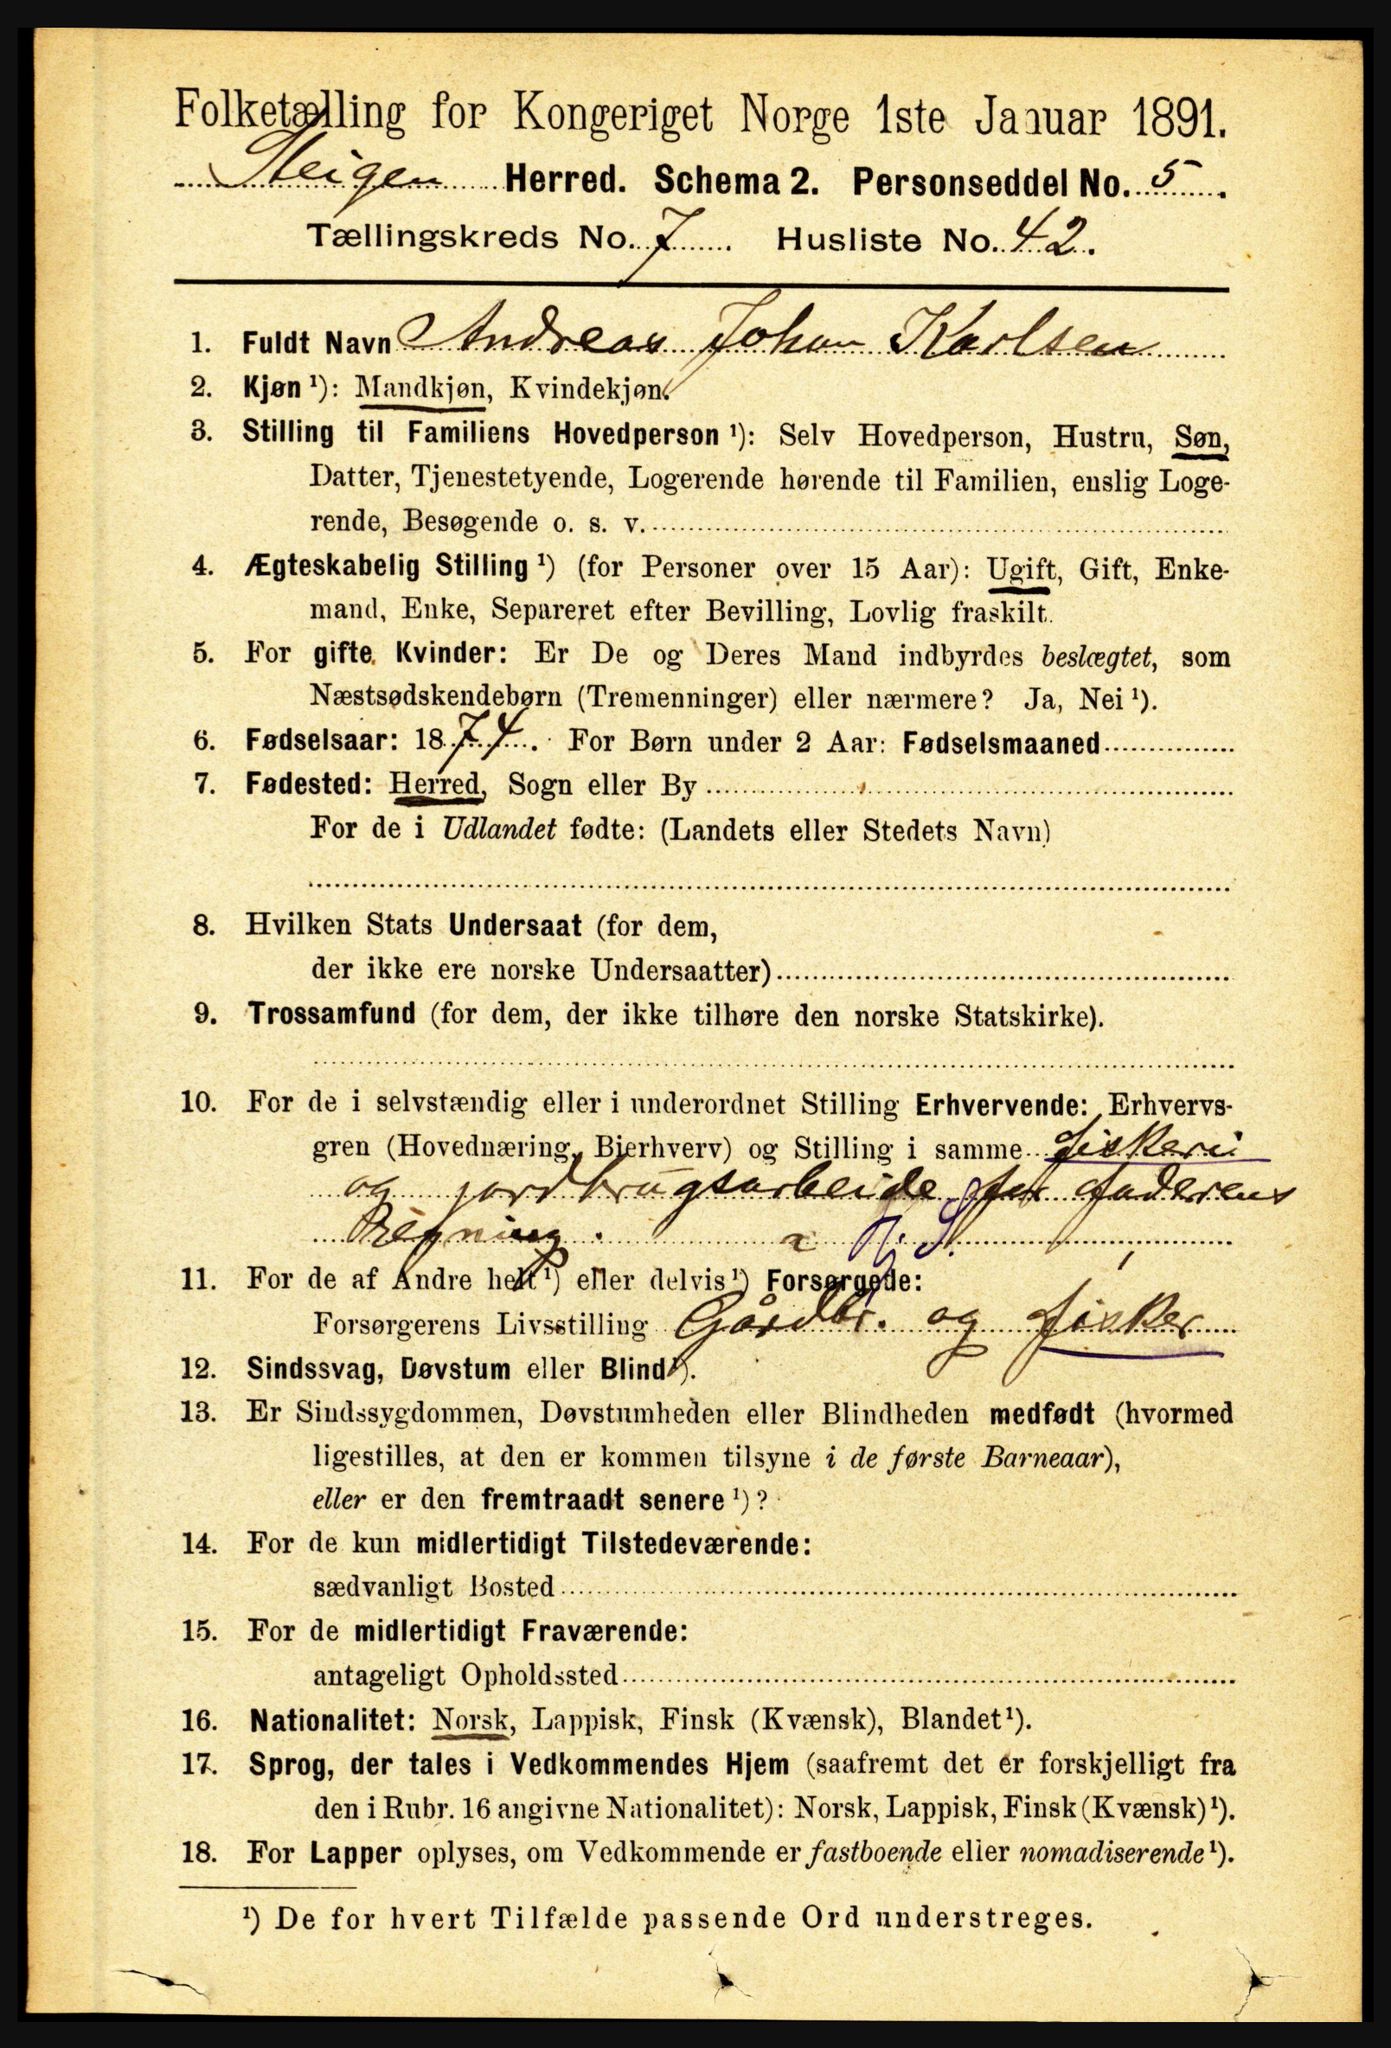 Folketælling for Kongeriget Norge 1ste Januar 1891.
Steigen Herred. Schema 2. Personseddel No. 5.
Tællingskreds No. 7. Husliste No. 42.
1. Fuldt Navn Andreas Johan Karlsen
2. Kjøn ¹): Mandkjøn, Kvindekjøn.
3. Stilling til Familiens Hovedperson ¹): Selv Hovedperson, Hustru, Søn,
Datter, Tjenestetyende, Logerende hørende til Familien, enslig Loge-
rende, Besøgende o. s. v.
4. Ægteskabelig Stilling ¹) (for Personer over 15 Aar): Ugift, Gift, Enke-
mand, Enke, Separeret efter Bevilling, Lovlig fraskilt.
5. For gifte Kvinder: Er De og Deres Mand indbyrdes beslægtet, som
Næstsødskendebørn (Tremenninger) eller nærmere? Ja, Nei ¹).
6. Fødselsaar: 1874. For Børn under 2 Aar: Fødselsmaaned
7. Fødested: Herred, Sogn eller By
For de i Udlandet fødte: (Landets eller Stedets Navn)
8. Hvilken Stats Undersaat (for dem,
der ikke ere norske Undersaatter)
9. Trossamfund (for dem, der ikke tilhøre den norske Statskirke).
10. For de i selvstændig eller i underordnet Stilling Erhvervende: Erhvervs-
gren (Hovednæring, Bierhverv) og Stilling i samme fiskeri
og jordbrugsarbeide for faderens
Regning.
11. For de af Andre helt ¹) eller delvis ¹) Forsørgede:
Forsørgerens Livsstilling Gårdbr. og fisker
12. Sindssvag, Døvstum eller Blind ¹).
13. Er Sindssygdommen, Døvstumheden eller Blindheden medfødt (hvormed
ligestilles, at den er kommen tilsyne i de første Barneaar),
eller er den fremtraadt senere ¹)?
14. For de kun midlertidigt Tilstedeværende:
sædvanligt Bosted
15. For de midlertidigt Fraværende:
antageligt Opholdssted
16. Nationalitet: Norsk, Lappisk, Finsk (Kvænsk), Blandet ¹).
17. Sprog, der tales i Vedkommendes Hjem (saafremt det er forskjelligt fra
den i Rubr. 16 angivne Nationalitet): Norsk, Lappisk, Finsk (Kvænsk) ¹).
18. For Lapper oplyses, om Vedkommende er fastboende eller nomadiserende ¹).
¹) De for hvert Tilfælde passende Ord understreges.